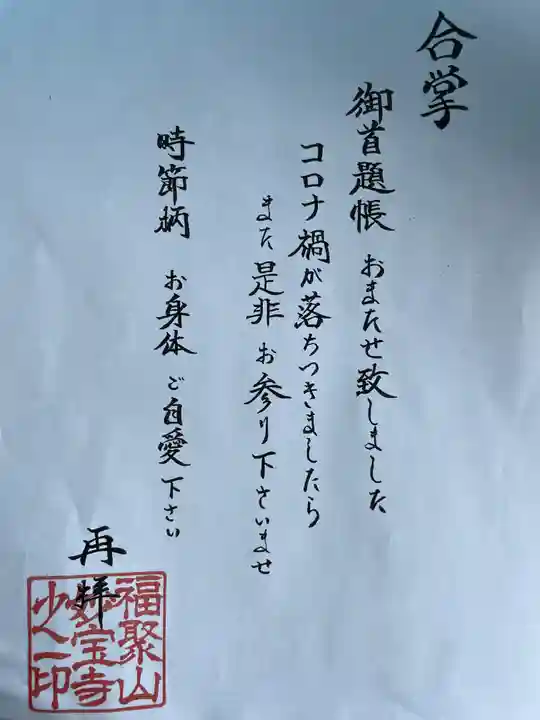 合掌
御首題帳 おまたせ致しました
コロナ禍が落ちつきましたら
また是非お参り下さいませ
時節柄 お身体ご自愛下さい
再拝
福聚山
妙宝寺